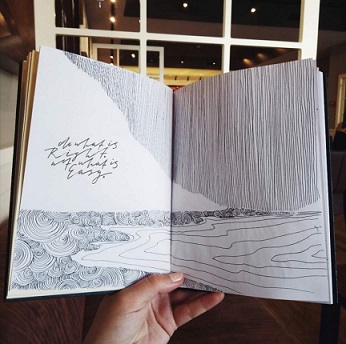 do what is
Right,
not what is
Easy.